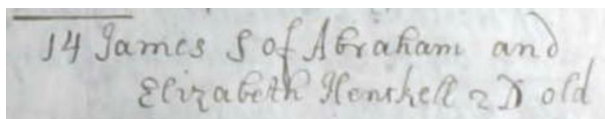 14 James S of Abraham and
Elizabeth Henshell 2 D old